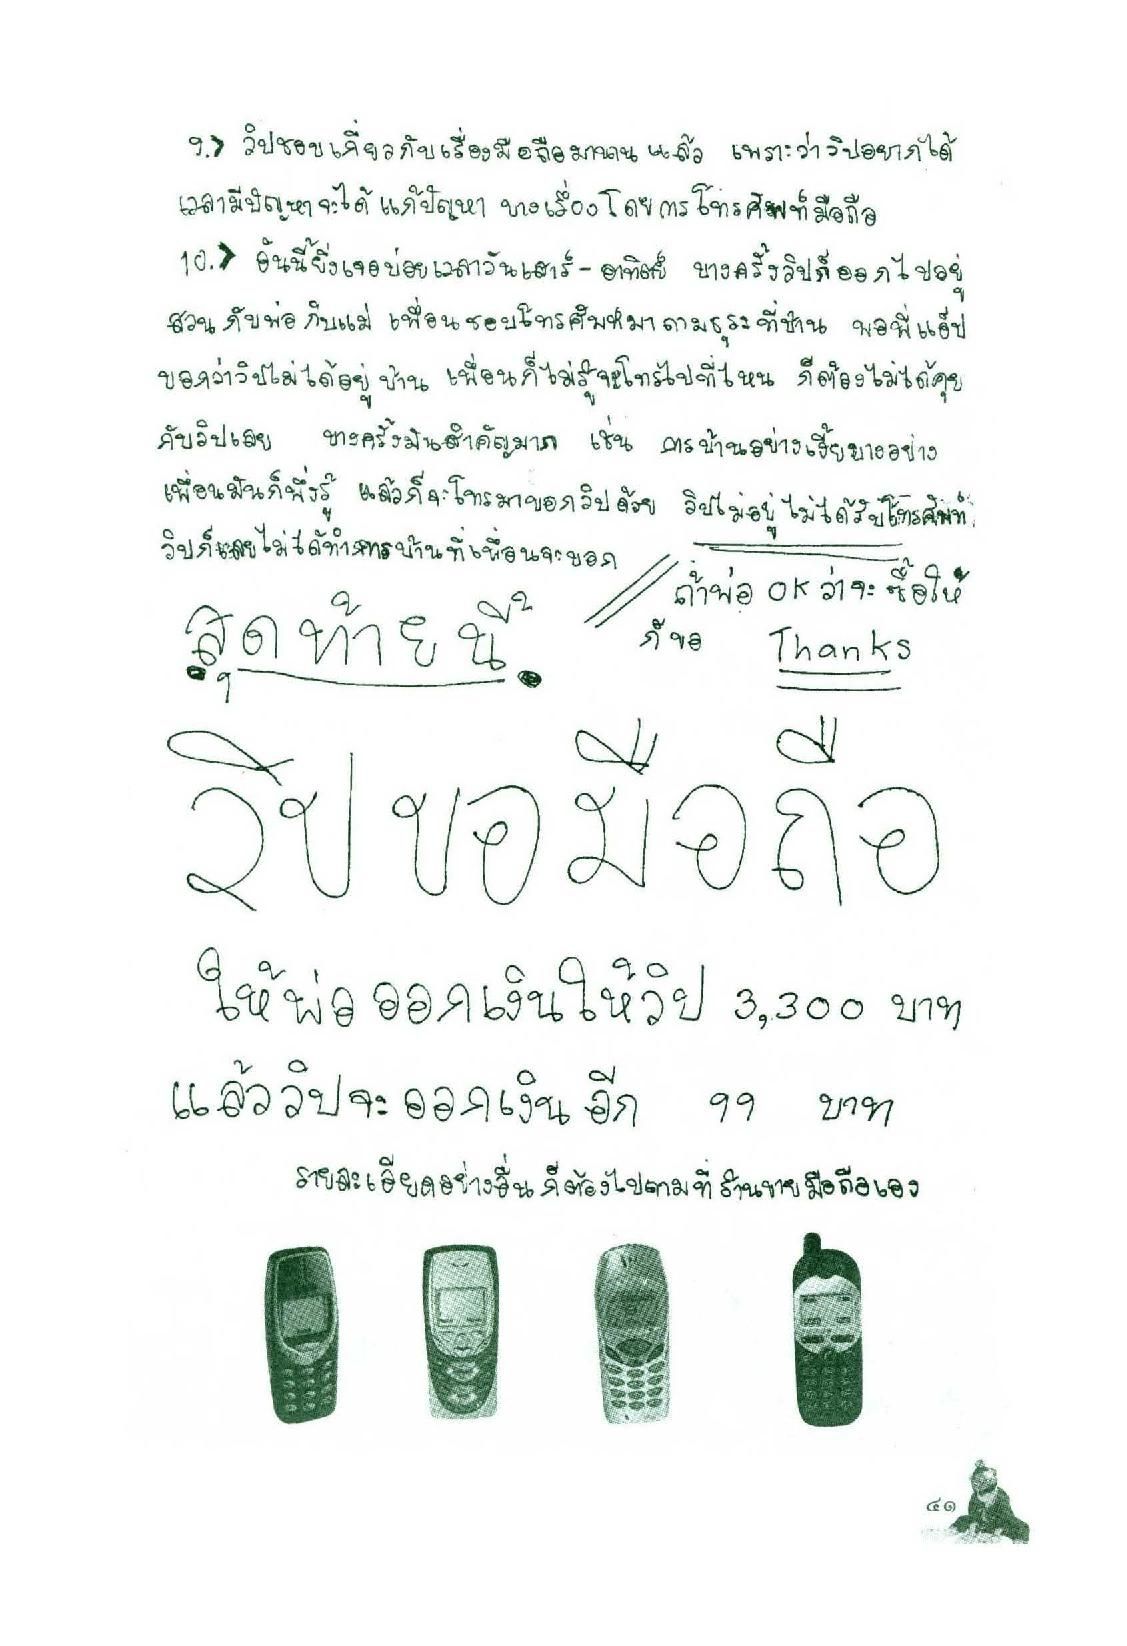 9.> วิปชอบเกี่ยวกับเรื่องมือถือมานานแล้ว เพราะว่าวิปอยากได้
เวลามีปัญหาจะได้แก้ปัญหา บางเรื่องโดยการโทรศัพท์มือถือ
10.> อันนี้ยิ่งเจอบ่อยเวลาวันเสาร์-อาทิตย์ บางครั้งวิปก็ออกไปอยู่
สวนกับพ่อกับแม่ เพื่อนชอบโทรศัพท์มาถามธุระที่บ้าน พอพี่แอ๊ป
บอกว่าวิปไม่ได้อยู่บ้าน เพื่อนก็ไม่รู้จะโทรไปที่ไหน ก็ต้องไม่ได้คุย
กับวิปเลย บางครั้งมันสำคัญมาก เช่น การบ้านอย่างเงี้ยบางอย่าง
เพื่อนมันก็พึ่งรู้ แล้วก็จะโทรมาบอกวิปด้วย วิปไม่อยู่ไม่ได้รับโทรศัพท์
วิปก็เลยไม่ได้ทำการบ้านที่เพื่อนจะบอก
ถ้าพ่อ OK ว่าจะซื้อให้
ก็ขอ Thanks
สุดท้ายนี้
วิปขอมือถือ
ให้พ่อออกเงินให้วิป 3,300 บาท
แล้ววิปจะออกเงินอีก 99 บาท
รายละเอียดอย่างอื่น ก็ต้องไปถามที่ร้านขายมือถือเอง
๔๑